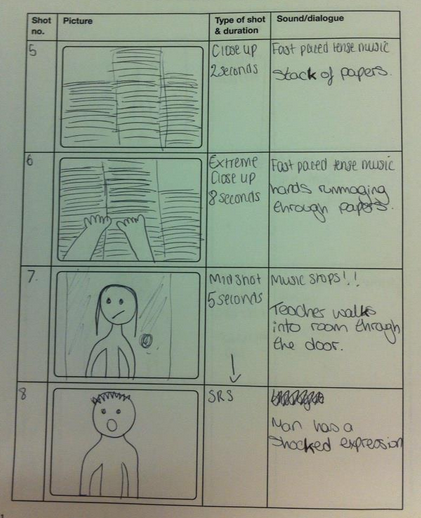 Shot no.
Picture
Type of shot & duration
Sound/dialogue
5
Close up
2 seconds
Fast paced tense music
Stack of papers.
6
Extreme
Close up
8 seconds
Fast paced tense music
hands rummaging
through papers.
7
Mid shot
5 seconds
Music stops!!
Teacher walks
into room through
the door.
8
SRS
Man has a
shocked expression